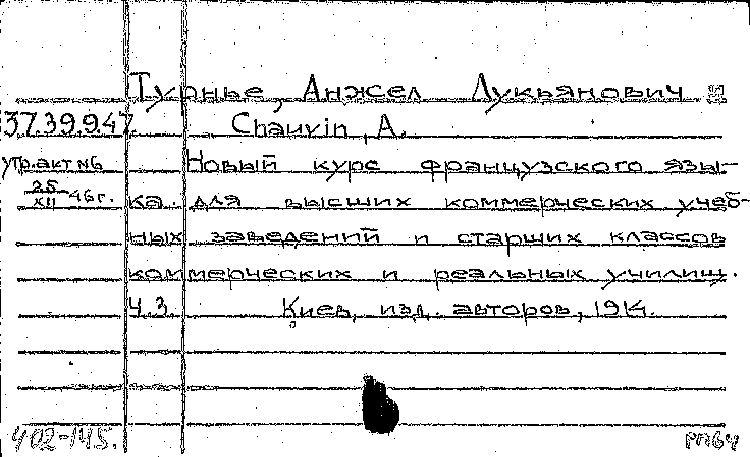 Турнье, Анжел Лукьянович
37.39.947. Chauvin, A.
утр.акт №6 Новый курс французского язы-
25/XII-46г. ка для высших коммерческих учеб-
ных заведений и старших классов
коммерческих и реальных училищ.
Ч.3. Киев, изд. авторов, 1914.
402-145. РПБ4